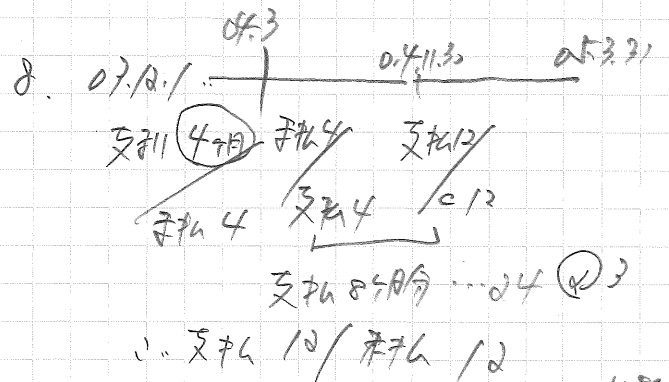 04.3
8. 03.12.1 04.11.30 05.3.31
支利 4ヶ月 未払4/ 支払12/
/未払4 /支払4 /C 12
支払 8ヶ月分 …24 ② 3
∴ 支払 12/未払 12